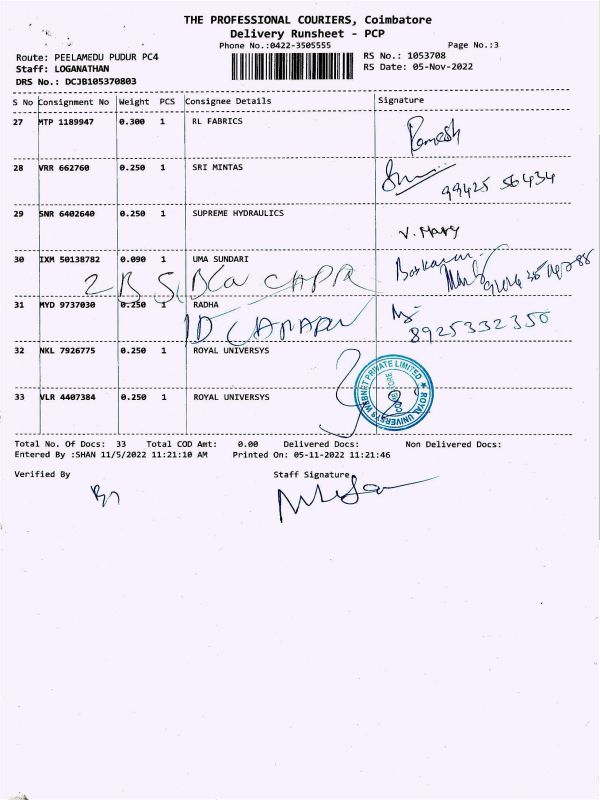 THE PROFESSIONAL COURIERS, Coimbatore
Delivery Runsheet - PCP
Phone No.:0422-3505555 Page No.:3
Route: PEELAMEDU PUDUR PC4 RS No.: 1053708
Staff: LOGANATHAN RS Date: 05-Nov-2022
DRS No.: DCJB105370803
S No Consignment No Weight PCS Consignee Details Signature
27 MTP 1189947 0.300 1 RL FABRICS
Ramesh
28 VRR 662760 0.250 1 SRI MINTAS
99425 56434
29 SNR 6402640 0.250 1 SUPREME HYDRAULICS
V. Mary
30 IXM 50138782 0.090 1 UMA SUNDARI
Baskaran
31 MYD 9737030 0.250 1 RADHA
8925332350
32 NKL 7926775 0.250 1 ROYAL UNIVERSYS
33 VLR 4407384 0.250 1 ROYAL UNIVERSYS
ROYAL UNIVERSYS WEBNET PRIVATE LIMITED
Total No. Of Docs: 33 Total COD Amt: 0.00 Delivered Docs: Non Delivered Docs:
Entered By :SHAN 11/5/2022 11:21:10 AM Printed On: 05-11-2022 11:21:46
Verified By Staff Signature